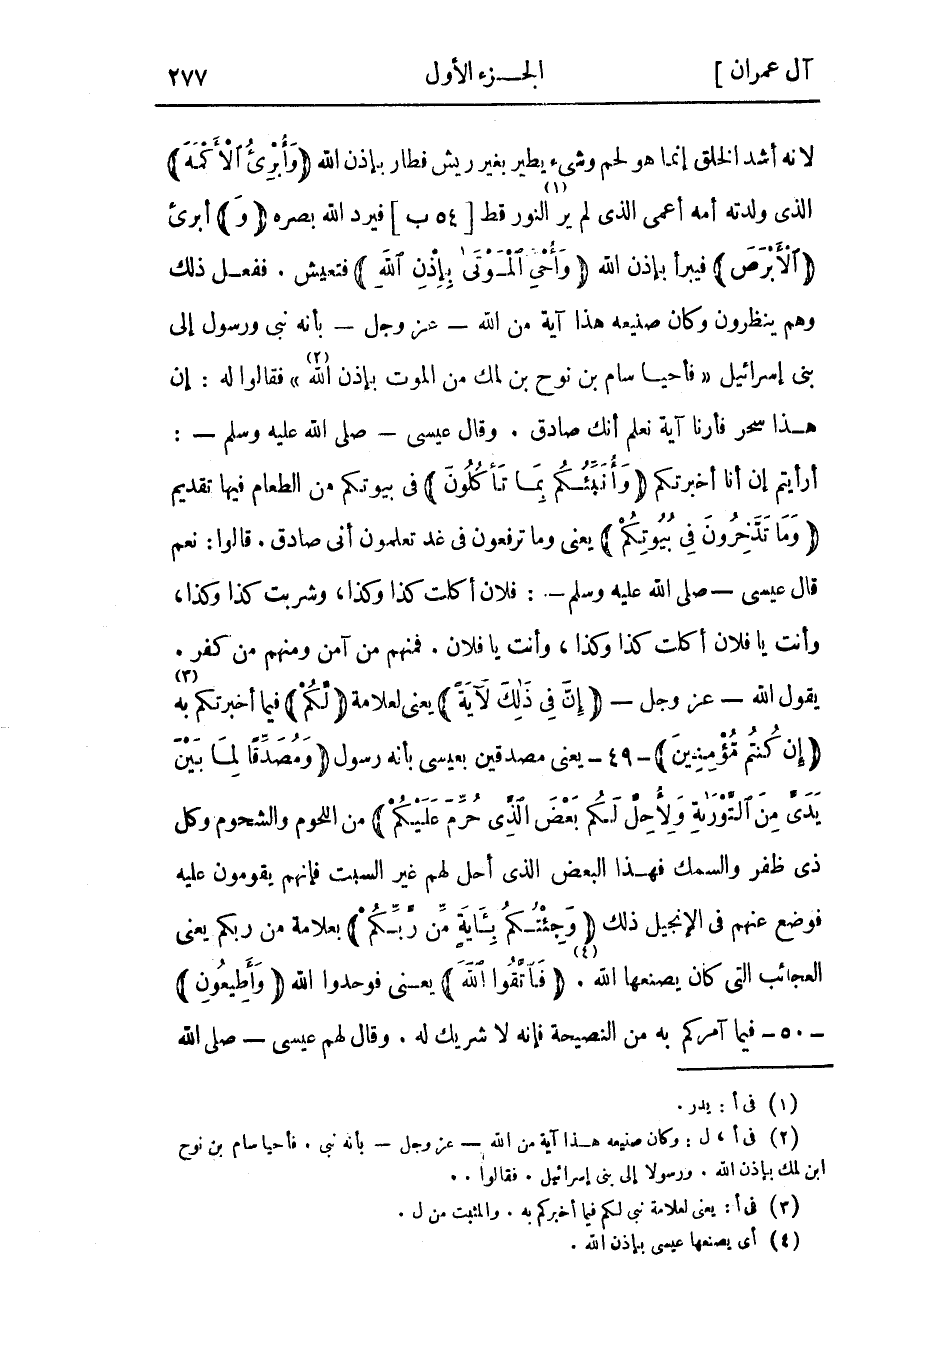 آل عمران ] الجـزء الأول ٢٧٧
لانه أشد الخلق إنما هو لحم وشىء يطير بغير ريش فطار بإذن الله ﴿وَأُبْرِئُ ٱلْأَكْمَهَ﴾
الذى ولدته أمه أعمى الذى لم ير (١) النور قط [ ٥٤ ب ] فيرد الله بصره ﴿وَ﴾ أبرئ
﴿ٱلْأَبْرَصَ﴾ فيبرأ بإذن الله ﴿وَأُحْيِ ٱلْمَوْتَىٰ بِإِذْنِ ٱللَّهِ﴾ فتعيش . ففعـل ذلك
وهم ينظرون وكان صنيعه هذا آية من الله — عز وجل — بأنه نبى ورسول إلى
بنى إسرائيل « فأحيـا سام بن نوح بن لمك من الموت بإذن الله (٢) » فقالوا له : إن
هـذا سحر فأرنا آية نعلم أنك صادق . وقال عيسى — صلى الله عليه وسلم — :
أرأيتم إن أنا أخبرتكم ﴿وَأُنَبِّئُـكُم بِمَـا تَأْكُلُونَ﴾ فى بيوتكم من الطعام فيها تقديم
﴿وَمَا تَدَّخِرُونَ فِى بُيُوتِكُمْ﴾ يعنى وما ترفعون فى غد تعلمون أنى صادق . قالوا : نعم
قال عيسى — صلى الله عليه وسلم — : فلان أكلت كذا وكذا، وشربت كذا وكذا،
وأنت يا فلان أكلت كذا وكذا ، وأنت يا فلان . فمنهم من آمن ومنهم من كفر .
يقول الله — عز وجل — ﴿إِنَّ فِى ذَٰلِكَ لَآيَةً﴾ يعنى لعلامة ﴿لَّكُمْ﴾ فيما أخبرتكم به (٣)
﴿إِن كُنتُم مُّؤْمِنِينَ﴾ - ٤٩ - يعنى مصدقين بعيسى بأنه رسول ﴿وَمُصَدِّقًا لِّمَا بَيْنَ
يَدَىَّ مِنَ ٱلتَّوْرَىٰةِ وَلِأُحِلَّ لَـكُم بَعْضَ ٱلَّذِى حُرِّمَ عَلَيْكُمْ﴾ من اللحوم والشحوم وكل
ذى ظفر والسمك فهـذا البعض الذى أحل لهم غير السبت فإنهم يقومون عليه
فوضع عنهم فى الإنجيل ذلك ﴿وَجِئْتُـكُم بِـَٔايَةٍ مِّن رَّبِّـكُمْ﴾ بعلامة من ربكم يعنى
العجائب التى كان يصنعها الله (٤) . ﴿فَٱتَّقُوا ٱللَّهَ﴾ يعـنى فوحدوا الله ﴿وَأَطِيعُونِ﴾
- ٥٠ - فيما آمركم به من النصيحة فإنه لا شريك له . وقال لهم عيسى — صلى الله
(١) فى أ : يدر .
(٢) فى أ ، ل : وكان صنيعه هـذا آية من الله — عز وجل — بأنه نبى . فأحيا سام بن نوح
ابن لمك بإذن الله . ورسولا إلى بنى إسرائيل . فقالوا . .
(٣) فى أ : يعنى لعلامة نبى لكم فيما أخبركم به . والمثبت من ل .
(٤) أى يصنعها عيسى بإذن الله .